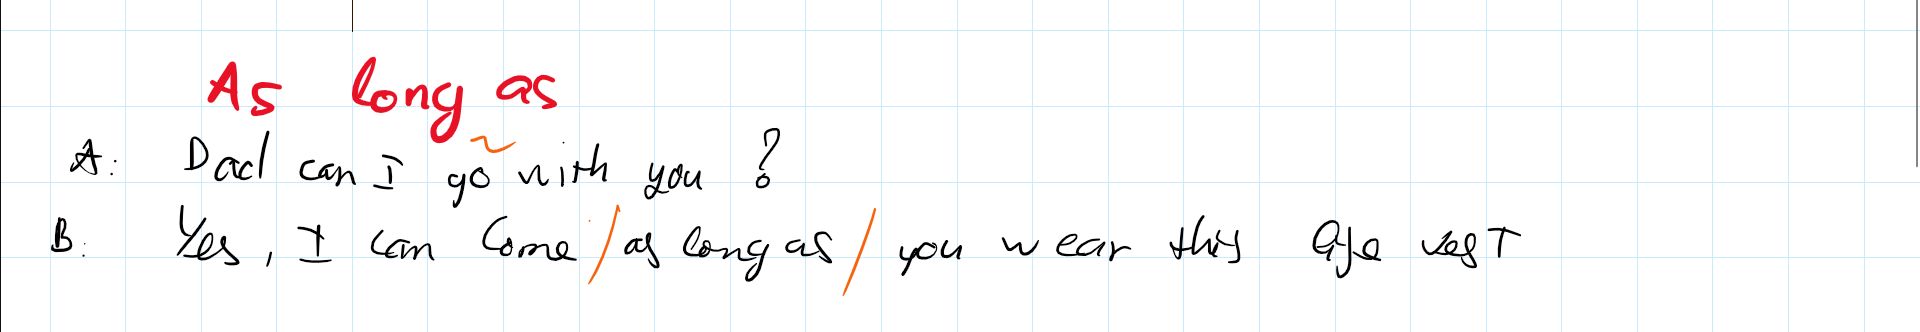 As long as
A: Dad can I go with you ?
B: Yes, I can Come / as long as / you wear this life vest